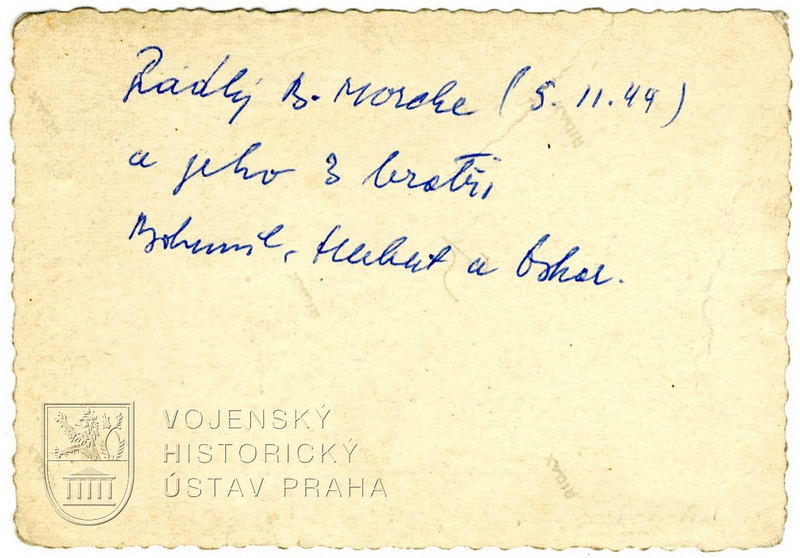 Řádký B. Morche (5.11.44)
a jeho 3 bratři
Bohumil, Herbert a Oskar.
VOJENSKÝ
HISTORICKÝ
ÚSTAV PRAHA
RIGAX